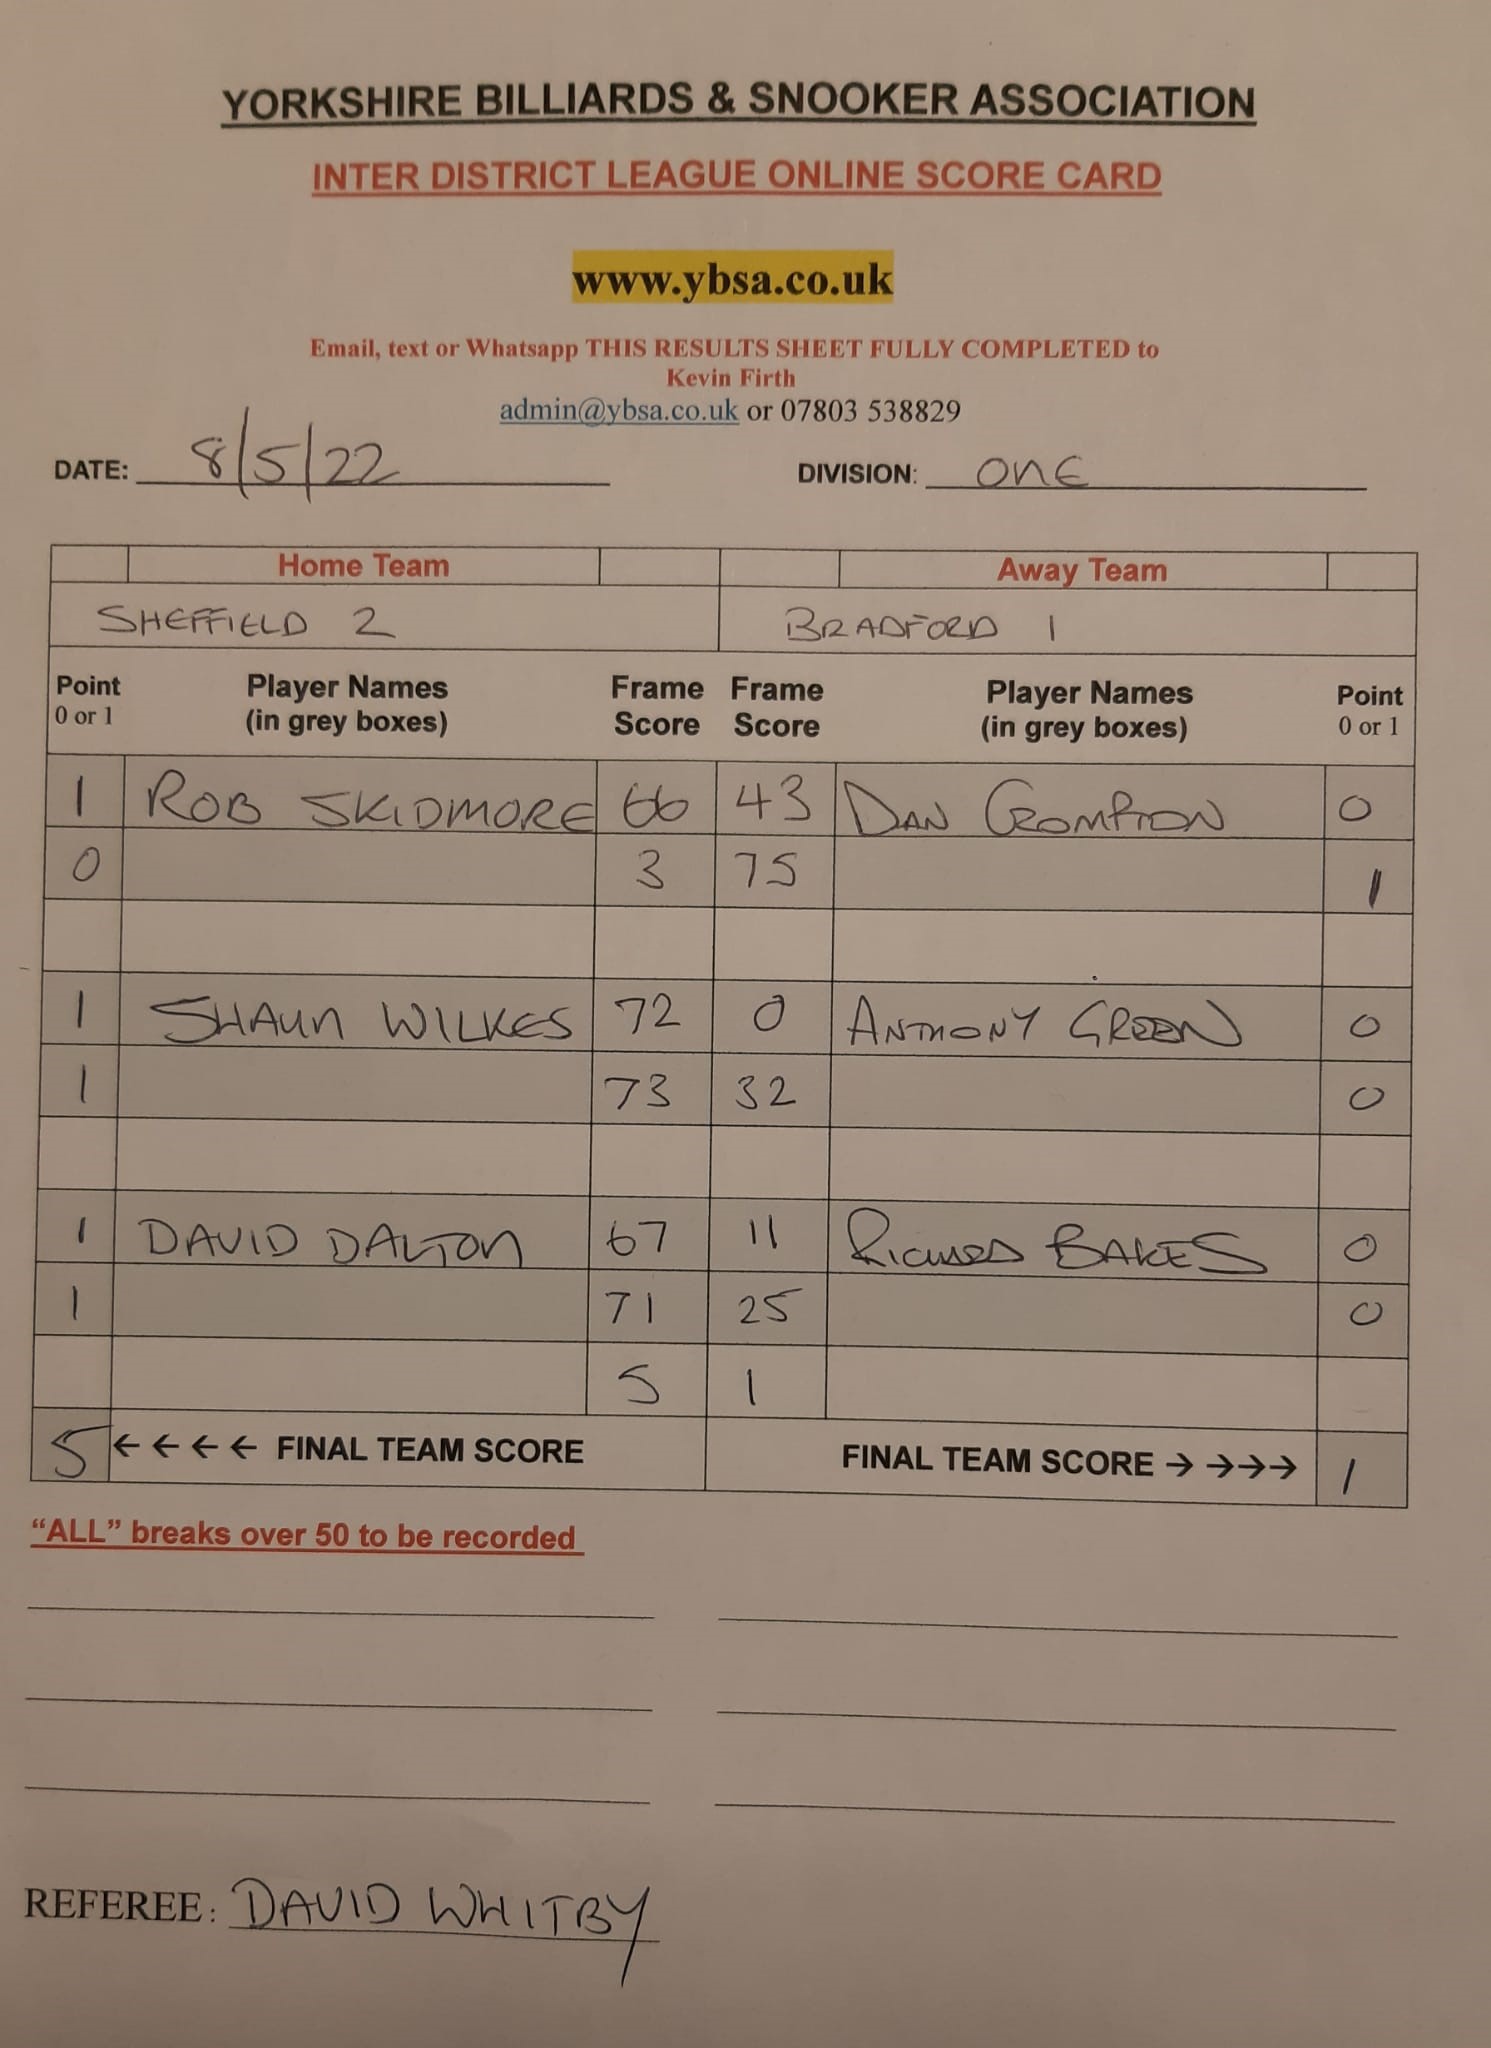 YORKSHIRE BILLIARDS & SNOOKER ASSOCIATION
INTER DISTRICT LEAGUE ONLINE SCORE CARD
www.ybsa.co.uk
Email, text or Whatsapp THIS RESULTS SHEET FULLY COMPLETED to
Kevin Firth
admin@ybsa.co.uk or 07803 538829
DATE: 8/5/22 DIVISION: ONE
Home Team Away Team
SHEFFIELD 2 BRADFORD 1
Point Player Names Frame Frame Player Names Point
0 or 1 (in grey boxes) Score Score (in grey boxes) 0 or 1
1 ROB SKIDMORE 66 43 DAN CROMPTON 0
0 3 75 1
1 SHAUN WILKES 72 0 ANTHONY GREEN 0
1 73 32 0
1 DAVID DALTON 67 11 RICHARD BAKES 0
1 71 25 0
5 1
5 ← ← ← ← FINAL TEAM SCORE FINAL TEAM SCORE → →→→ 1
“ALL” breaks over 50 to be recorded
REFEREE: DAVID WHITBY